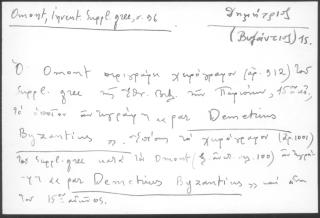 Omont, invent. Suppl. grec, σ. 96
Δημήτριος
(Βυζάντιος) 15.
Ὁ Omont περιγράφει χειρόγραφον (ἀρ. 912) τοῦ
Suppl. grec τῆς Ἐθν. Βιβ. τῶν Παρισίων, 15ου αἰ.,
τὸ ὁποῖον ἀντεγράφη « par Demetrius
Byzantius ». Ἐπίσης τὸ χειρόγραφον (ἀρ. 1001)
τοῦ Suppl. grec κατὰ τὸν Omont ( σ. 100) ἀντεγρά-
φη « par Demetrius Byzantius » καὶ εἶναι
τοῦ 15ου αἰῶνος.